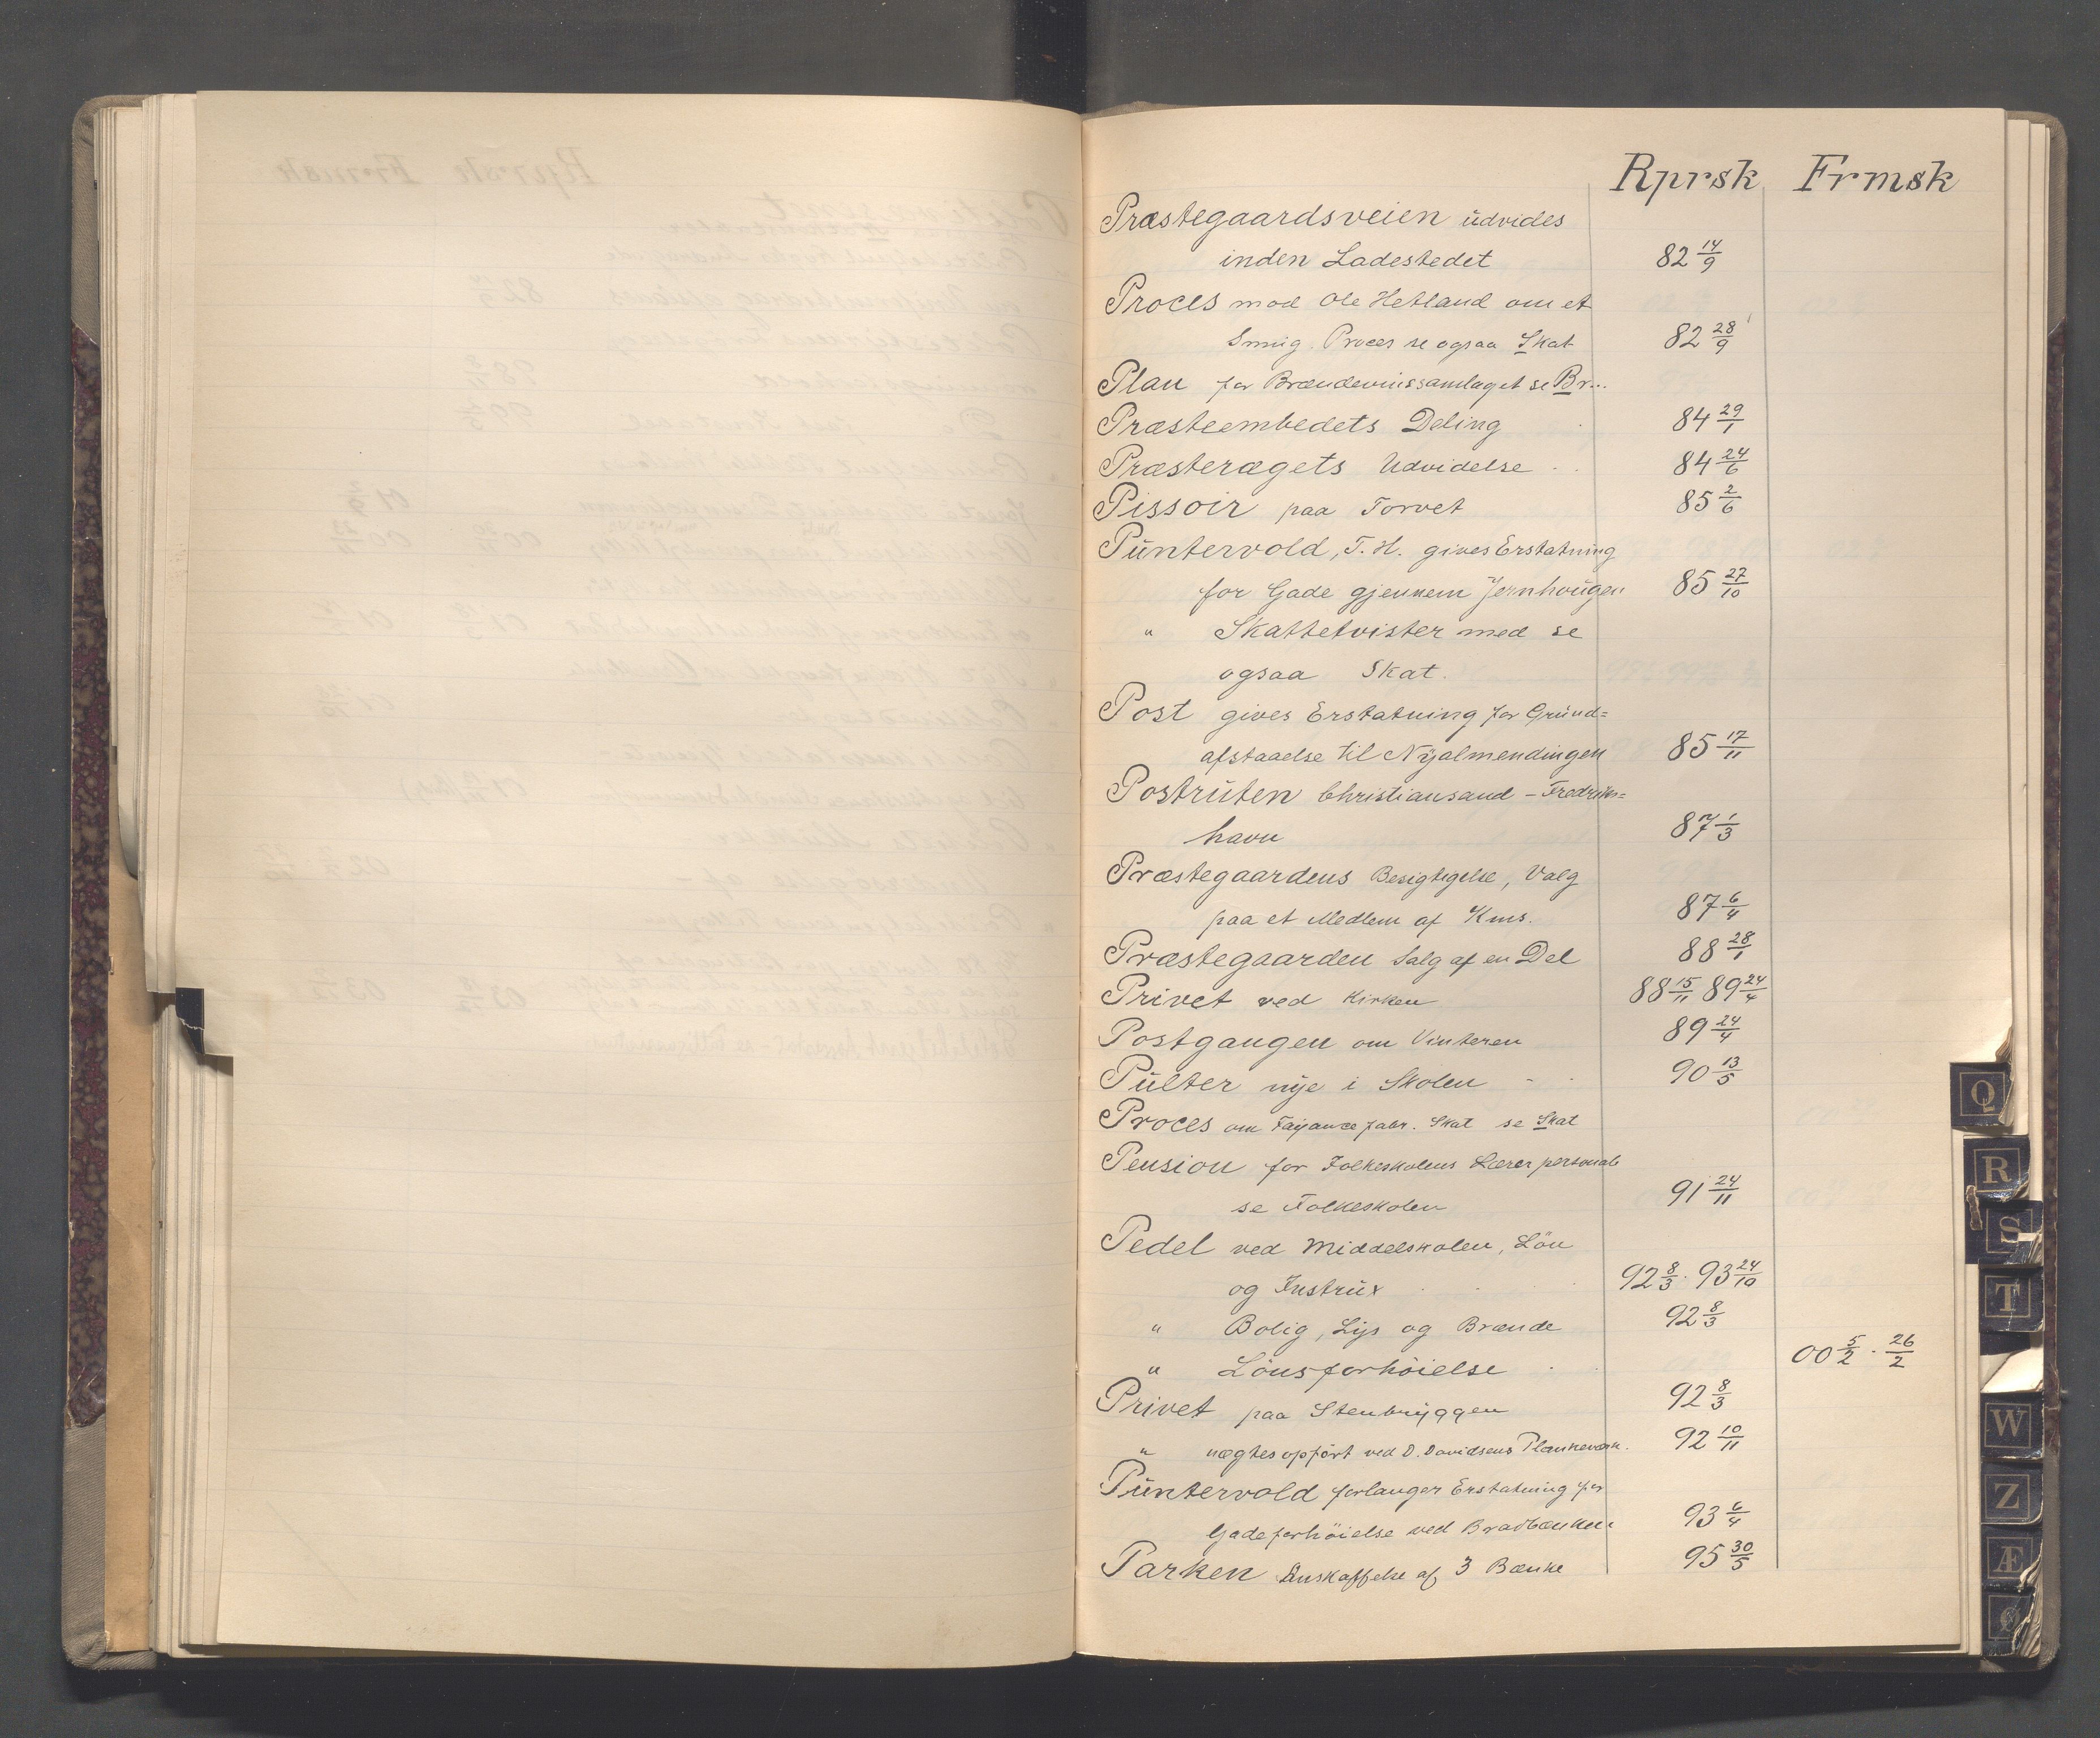 Rprsk Frmsk
Præstegaardsveien udvides
inden Ladestedet 82 14/9
Proces mod Ole Hetland om et
Smug. Proces se ogsaa Skat 82 28/9
Plan for Brændevinssamlaget se Br...
Præsteembedets Deling 84 29/1
Præsterægets Udvidelse 84 24/6
Pissoir paa Torvet 85 2/6
Püntervold, T. H. gives Erstatning
for Gade gjennem Jernhougen 85 27/10
" Skattetvister med se
ogsaa Skat.
Post gives Erstatning for Grund=
afstaaelse til Nyalmendingen 85 17/11
Postruten Christiansand – Fredriks=
havn 87 1/3
Præstegaardens Besigtigelse, Valg
paa et Medlem af Kms. 87 6/4
Præstegaarden Salg af en Del 88 28/1
Privet ved Kirken 88 15/11 89 24/4
Postgangen om Vinteren 89 24/4
Pulter nye i Skolen 90 13/5
Proces om Fayance fabr. Skat se Skat
Pension for Folkeskolens Lærer personale
se Folkeskolen 91 24/11
Pedel ved Middelskolen, Lön
og Instrux 92 8/3 · 93 24/10
" Bolig, Lys og Brænde 92 8/3
" Lönsforhöielse 00 5/2 · 26/2
Privet paa Stenbryggen 92 8/3
" nægtes opfört ved D. Davidsens Plankeværk. 92 10/11
Püntervold forlanger Erstatning for
Gadeforhöielse ved Bradbænken 93 6/4
Parken Anskaffelse af 3 Bænke 95 30/5
Q
R
S
T
W
Z
Æ
Ø